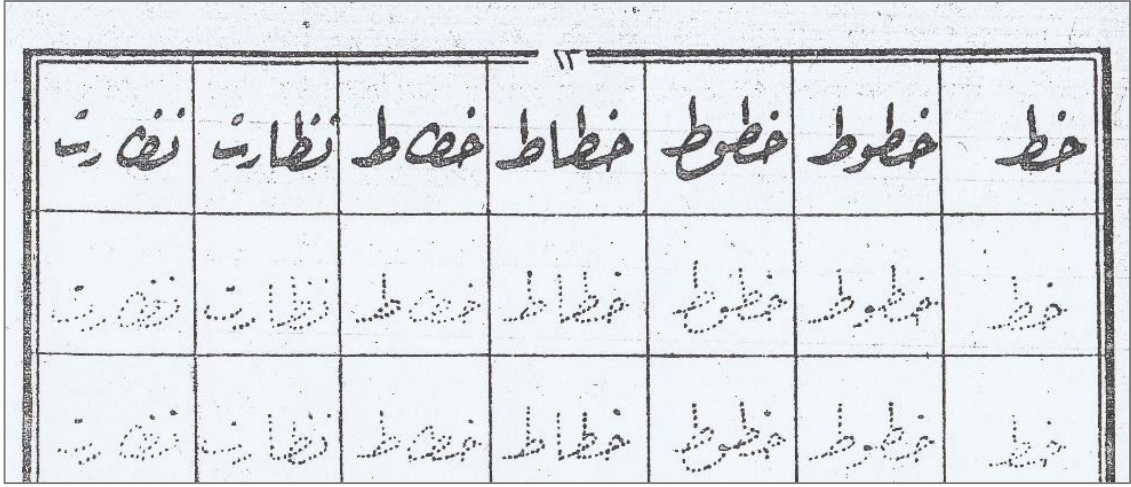 ١٣
خط خطوط خطوط خطاط خطاط نظارت نظارت
خط خطوط خطوط خطاط خطاط نظارت نظارت
خط خطوط خطوط خطاط خطاط نظارت نظارت